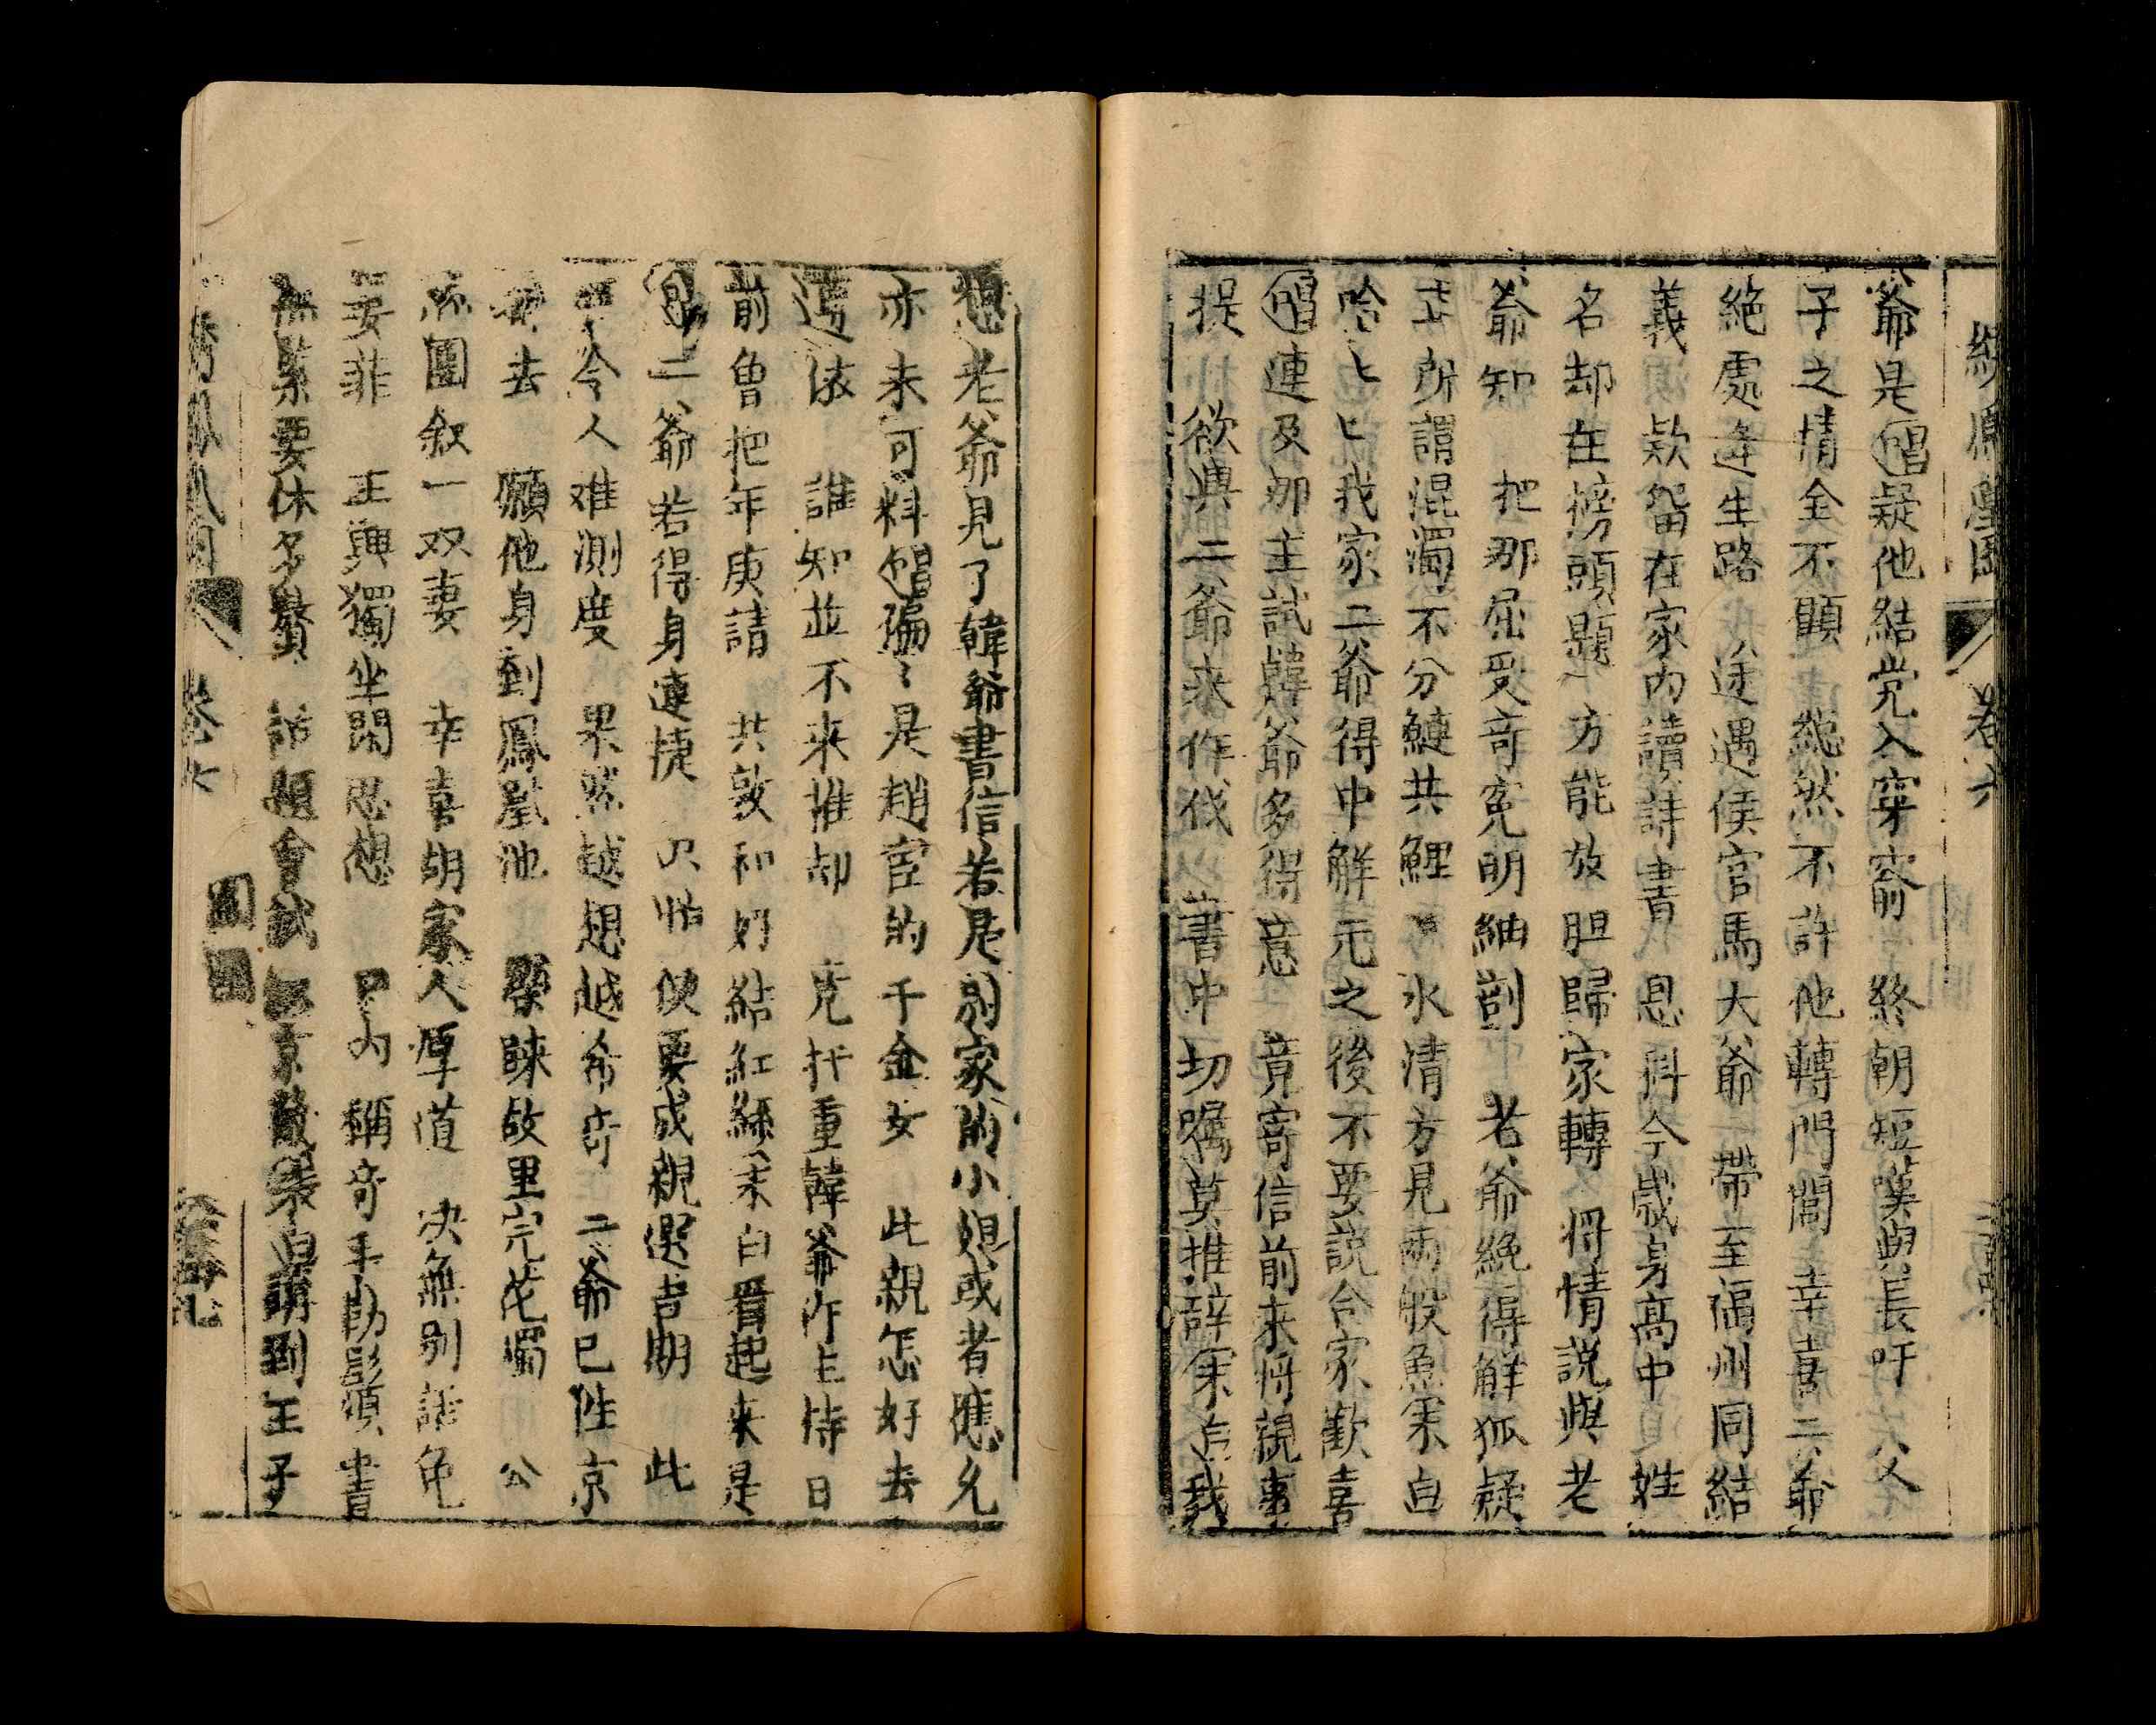 繡鳳凰圖 卷六
爺是唱疑他結党入穿窬 終朝短嘆與長吁 父
子之情全不顧 純然不許他轉門閭 幸喜二爺
絕處逢生路 途遇侯官馬大爺 帶至福州同結
義 欵留在家內讀詩書 恩科今歲身高中 姓
名却在榜頭題 方能放胆歸家轉 將情説與老
爺知 把那屈受奇寃明細剖 老爺纔得解狐疑
正所謂混濁不分鰱共鯉 水清方見兩般魚宋白
哈匕匕我家二爺得中解元之後不要説合家歡喜
唱連及那主試韓爺多得意 竟寄信前来將親事
提 欲與二爺来作伐 書中切嘱莫推辞宋白我
想老爺見了韓爺書信若是别家的小姐或者應允
亦未可料唱偏匕是趙宦的千金女 此親怎好去
從依 誰知並不來推却 竟托重韓爺作主持 日
前曾把年庚請 共敦和好結紅絲宋白看起来是
二爺若得身連捷 只怕便要成親選吉期 此
令人难測度 果然越想越希奇 二爺已往京
去 願他身到鳳凰池 榮歸故里完花燭 公
團叙一双妻 幸喜胡家人厚道 决無别話免
妄菲 王興獨坐閑思想 内稱奇手勒鬚書
無緊要休多贅 話題會試 京 到王子
卷六